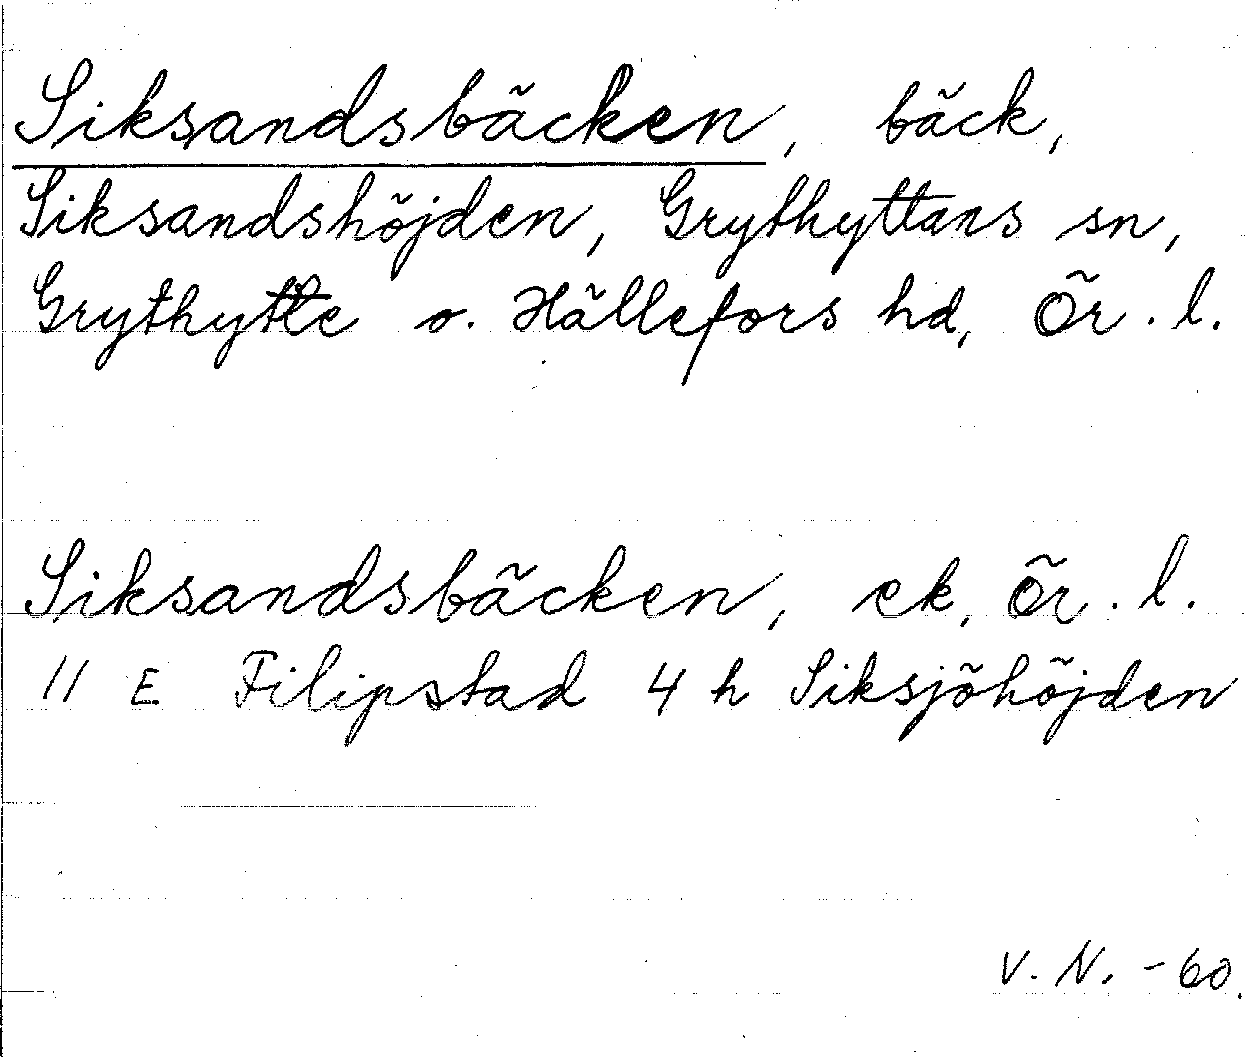 Siksandsbäcken, bäck,
Siksandshöjden, Grythyttans sn,
Grythytte o. Hällefors hd, Ör. l.
Siksandsbäcken, ek, Ör. l.
11 E Filipstad 4 h Siksjöhöjden
V. N. -60.